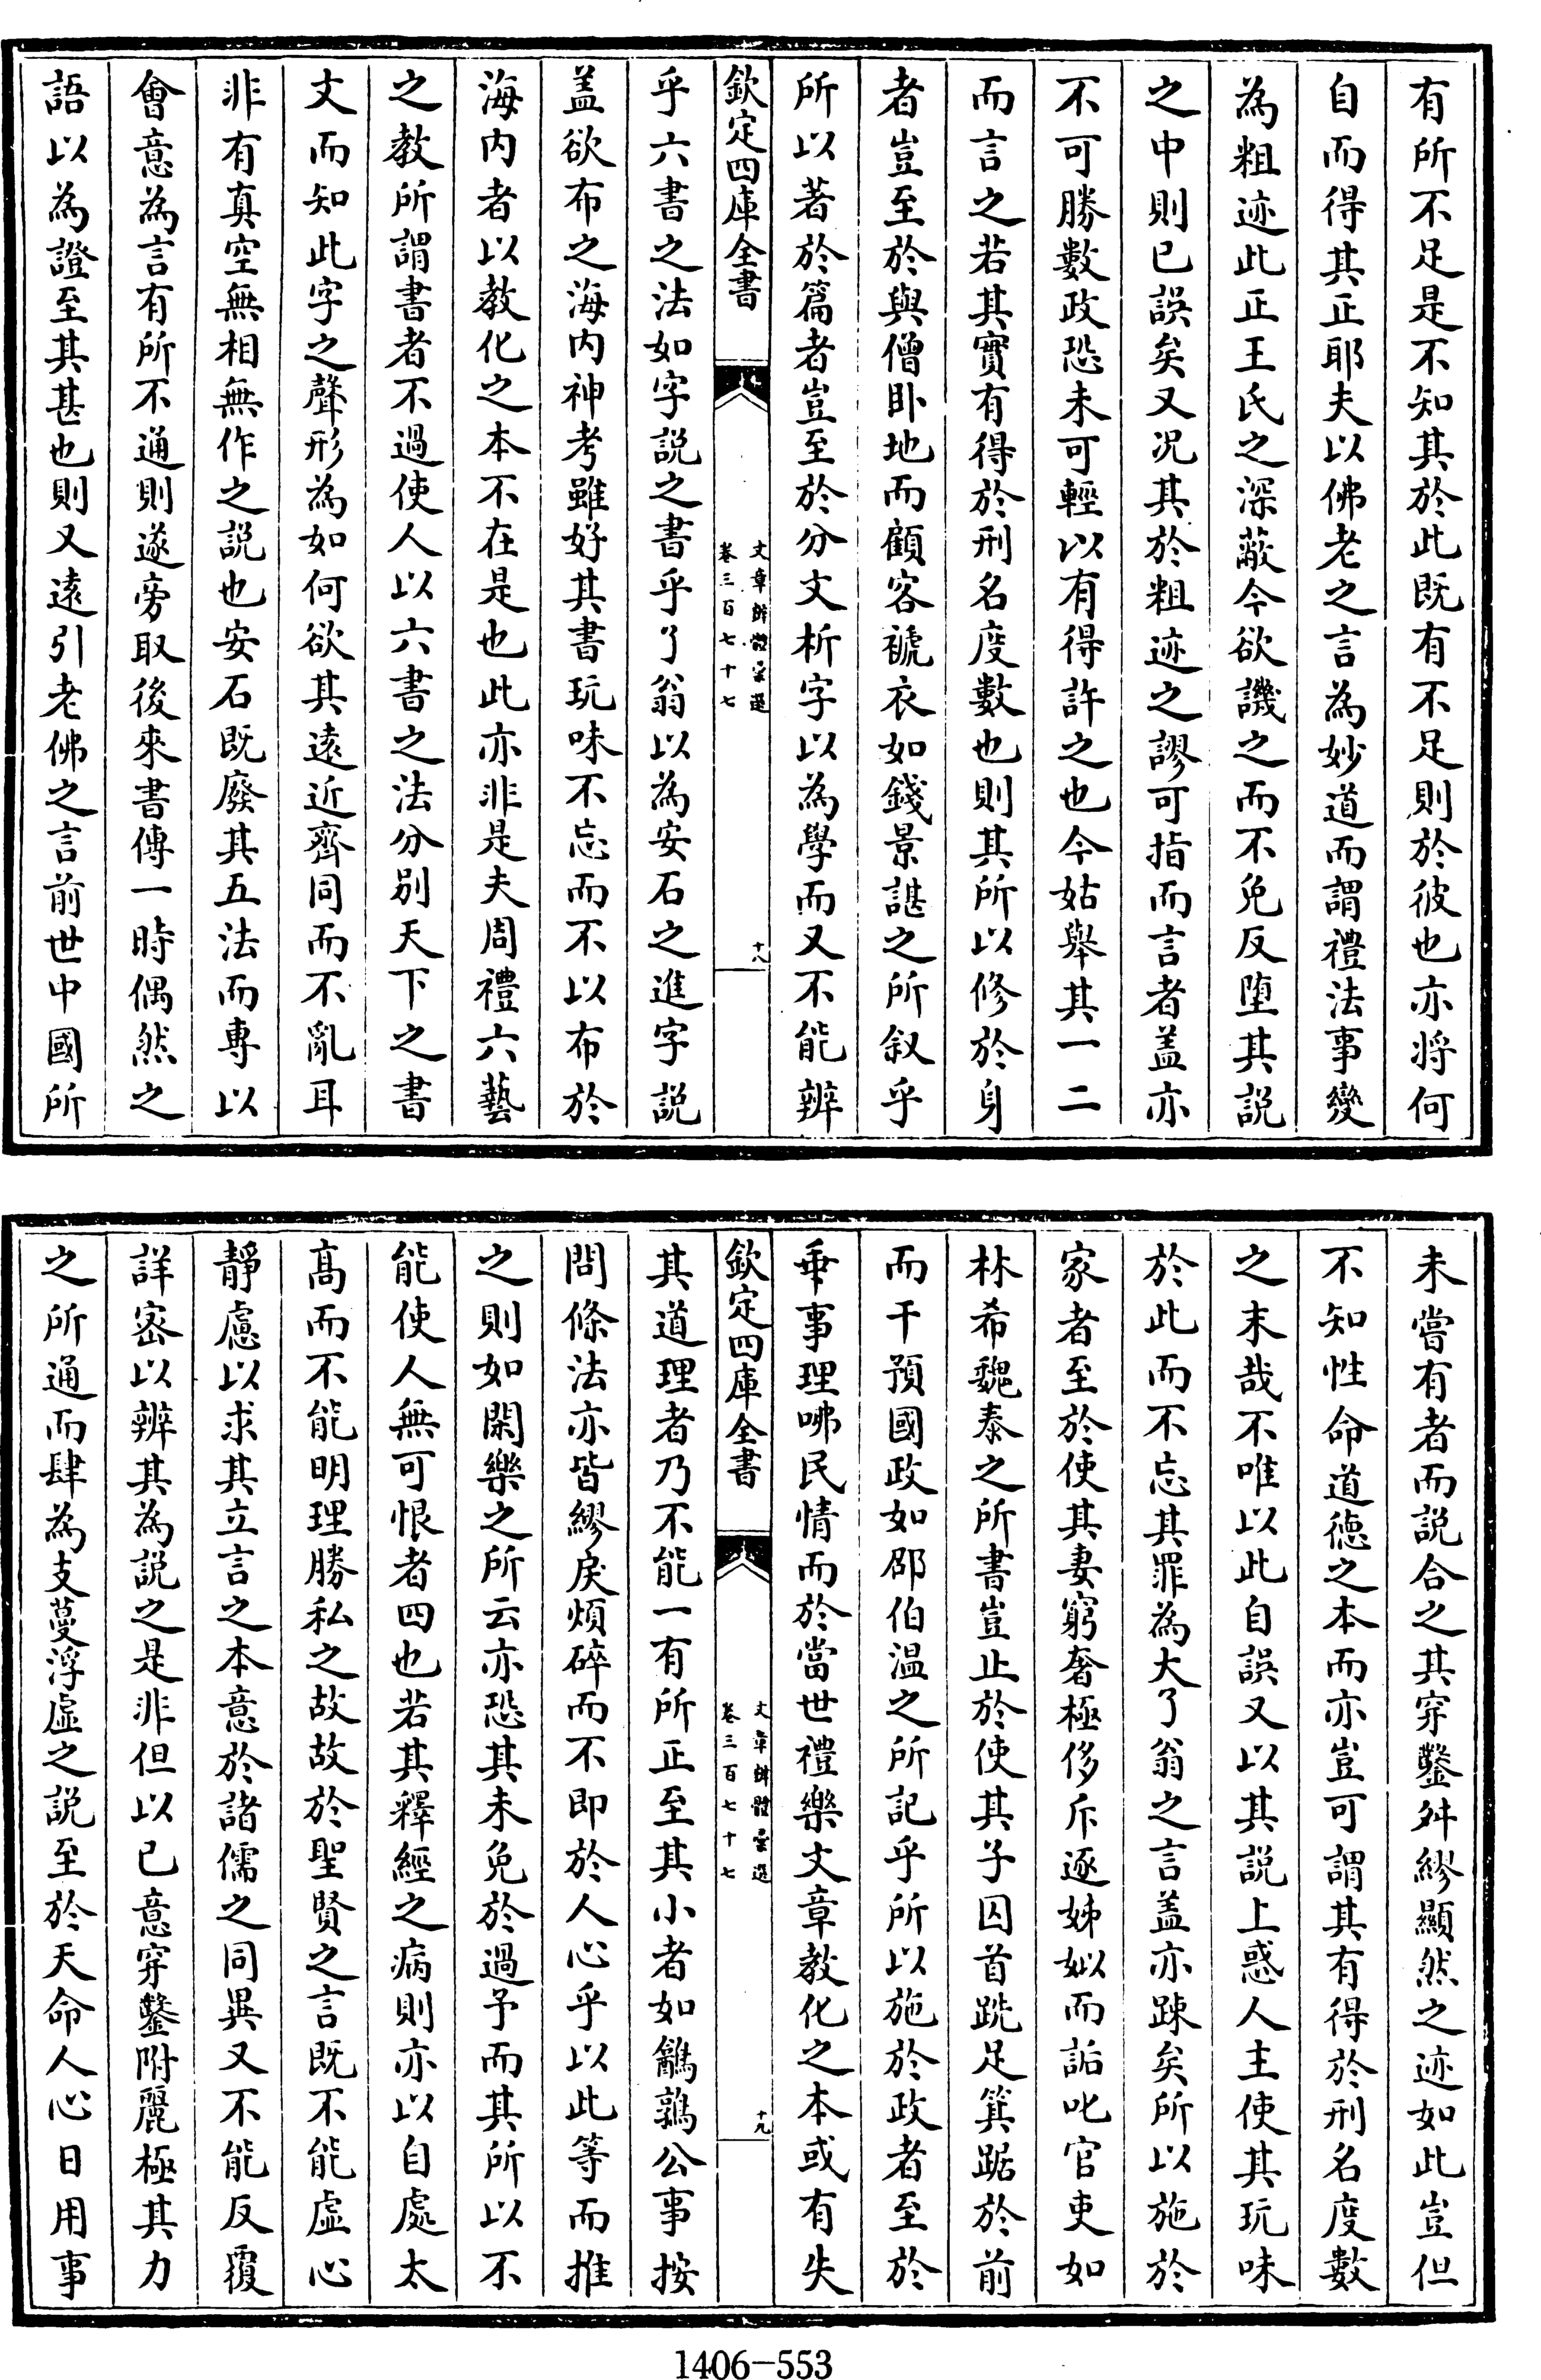 有所不足是不知其於此既有不足則於彼也亦將何
自而得其正耶夫以佛老之言為妙道而謂禮法事變
為粗迹此正王氏之深蔽今欲譏之而不免反墮其説
之中則已誤矣又况其於粗迹之謬可指而言者盖亦
不可勝數政恐未可輕以有得許之也今姑舉其一二
而言之若其實有得於刑名度數也則其所以修於身
者豈至於與僧卧地而顧客褫衣如錢景諶之所叙乎
所以著於篇者豈至於分文析字以為學而又不能辨
欽定四庫全書
文章辨體彚選
卷三百七十七
十八
乎六書之法如字説之書乎了翁以為安石之進字説
盖欲布之海内神考雖好其書玩味不忘而不以布於
海内者以教化之本不在是也此亦非是夫周禮六藝
之教所謂書者不過使人以六書之法分别天下之書
文而知此字之聲形為如何欲其遠近齊同而不亂耳
非有真空無相無作之説也安石既廢其五法而専以
會意為言有所不通則遂旁取後來書傳一時偶然之
語以為證至其甚也則又遠引老佛之言前世中國所
未嘗有者而説合之其穿鑿舛繆顯然之迹如此豈但
不知性命道德之本而亦豈可謂其有得於刑名度數
之末哉不唯以此自誤又以其説上惑人主使其玩味
於此而不忘其罪為大了翁之言盖亦踈矣所以施於
家者至於使其妻窮奢極侈斥逐姊姒而詬叱官吏如
林希魏泰之所書豈止於使其子囚首跣足箕踞於前
而干預國政如邵伯温之所記乎所以施於政者至於
乖事理咈民情而於當世禮樂文章教化之本或有失
欽定四庫全書
文章辨體彚選
卷三百七十七
十九
其道理者乃不能一有所正至其小者如鶺鶉公事按
問條法亦皆繆戾煩碎而不即於人心乎以此等而推
之則如閑樂之所云亦恐其未免於過予而其所以不
能使人無可恨者四也若其釋經之病則亦以自處太
髙而不能明理勝私之故故於聖賢之言既不能虚心
靜慮以求其立言之本意於諸儒之同異又不能反覆
詳宻以辨其為説之是非但以已意穿鑿附麗極其力
之所通而肆為支蔓浮虚之説至於天命人心日用事
1406-553